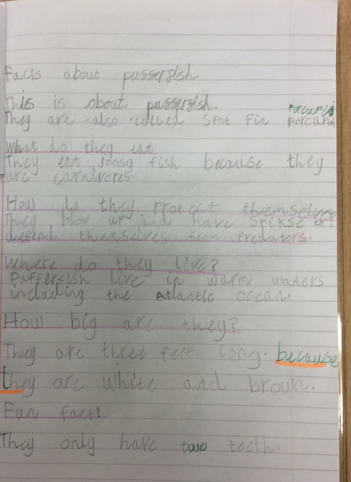 Facts about pufferfish.
This is about pufferfish.
They are also called Spot Fin porcupi
What do they eat
They eat fish because they
are carnivores.
How do they protect themselves
They blow up and have spikse
defend themselves from predators.
Where do they live?
Pufferfish live in warm waters
including the Atlantic ocean.
How big are they?
They are three feet long. because
they are white and brown.
Fun fact!
They only have two teeth.